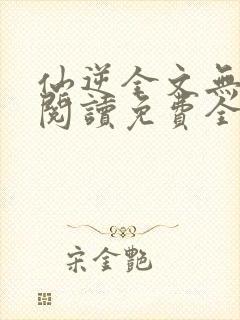 仙逆全文無
閱讀免費全
宋金艷